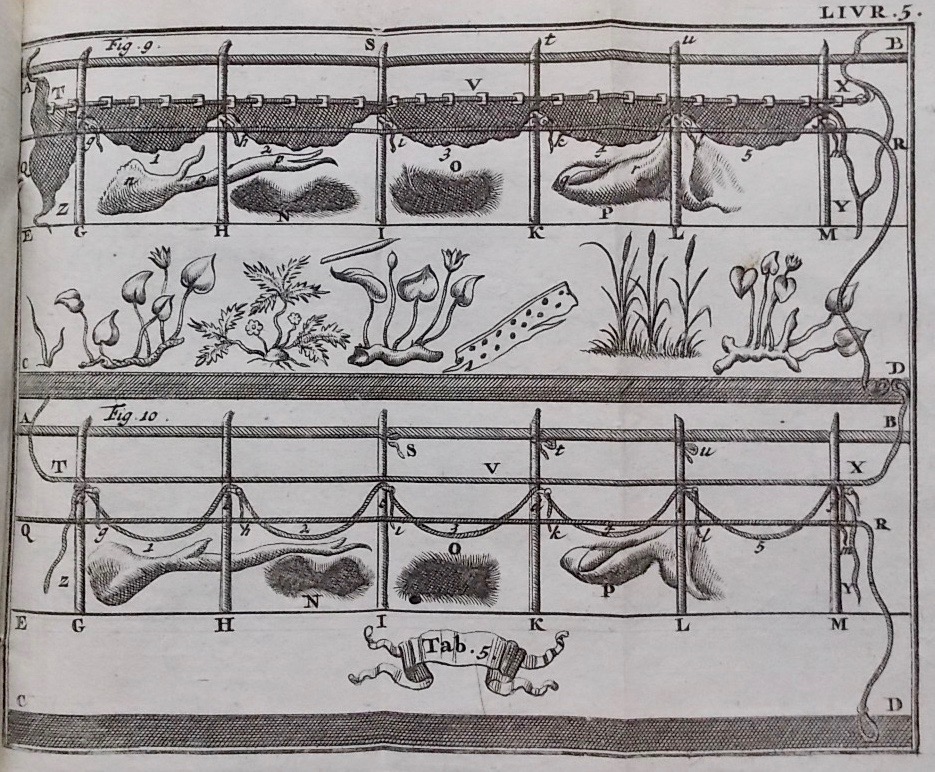 LIVR. 5.
Fig. 9. S t u B
A T V X
g h i k m R
Q 1 2 3 4 5
n o p O r
Z N P Y
E G H I K L M
C D
A Fig. 10. B
S t u
T V X
Q g h i k l R
1 2 3 4 5
O
Z N P Y
E G H I K L M
Tab. 5.
C D